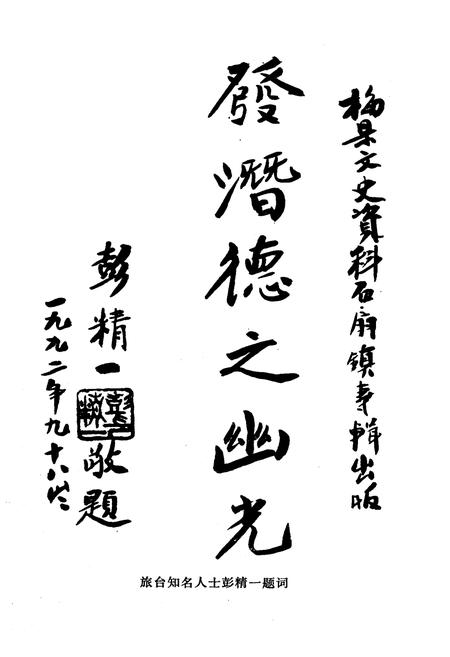 梅県文史資料石扇镇専輯出版
發潛德之幽光
彭精一敬題
一九九二年九十八岁
旅台知名人士彭精一题词